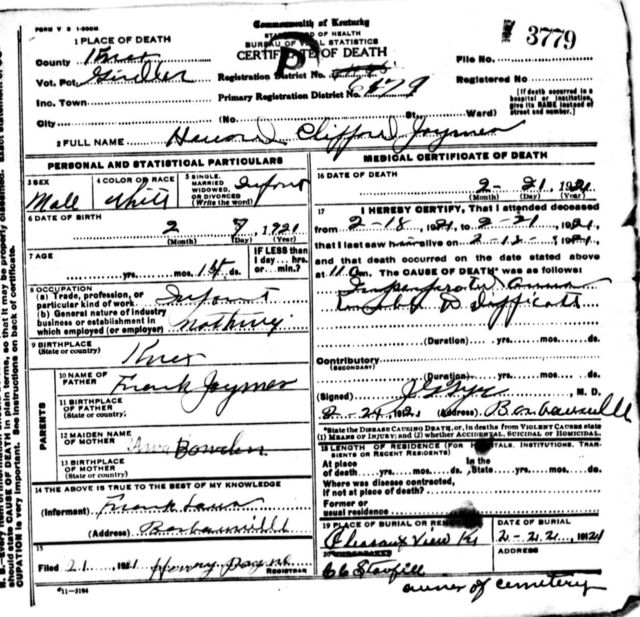 FORM V S 1-500M
Commonwealth of Kentucky
STATE BOARD OF HEALTH
BUREAU OF VITAL STATISTICS
CERTIFICATE OF DEATH
3779
1 PLACE OF DEATH
County Knox
Vot. Pct. Girdler
Inc. Town
City
Registration District No.
Primary Registration District No. 6479
File No.
Registered No.
(No. St. Ward)
[If death occurred in a hospital or institution, give its NAME instead of street and number.]
2 FULL NAME Clifford
PERSONAL AND STATISTICAL PARTICULARS
3 SEX Male
4 COLOR OR RACE White
5 SINGLE, MARRIED WIDOWED, OR DIVORCED (Write the word) Infant
6 DATE OF BIRTH
2 7, 1921
(Month) (Day) (Year)
7 AGE
yrs. mos. 14 ds.
IF LESS than 1 day... hrs. or min.?
8 OCCUPATION
(a) Trade, profession, or particular kind of work Infant
(b) General nature of industry business or establishment in which employed (or employer) Nothing
9 BIRTHPLACE
(State or country) Knox
PARENTS
10 NAME OF FATHER Frank
11 BIRTHPLACE OF FATHER
(State or country)
12 MAIDEN NAME OF MOTHER
13 BIRTHPLACE OF MOTHER
(State or country)
14 THE ABOVE IS TRUE TO THE BEST OF MY KNOWLEDGE
(Informant) Frank
(Address) Barbourville
15
Filed 21 1921 Henry
REGISTRAR
11-3184
MEDICAL CERTIFICATE OF DEATH
16 DATE OF DEATH
2 - 21, 1921
(Month) (Day) (Year)
17 I HEREBY CERTIFY, That I attended deceased
from 2-18, 1921, to 2-21, 1921,
that I last saw alive on
and that death occurred on the date stated above
at 11 am. The CAUSE OF DEATH* was as follows:
(Duration) yrs. mos. ds.
Contributory
(SECONDARY)
(Duration) yrs. mos. ds.
(Signed) M. D.
2-24, 1921 (Address) Barbourville
*State the DISEASE CAUSING DEATH, or, in deaths from VIOLENT CAUSES state (1) MEANS OF INJURY; and (2) whether ACCIDENTAL, SUICIDAL OR HOMICIDAL.
18 LENGTH OF RESIDENCE (FOR HOSPITALS, INSTITUTIONS, TRANSIENTS OR RECENT RESIDENTS)
At place of death yrs. mos. ds. In the State yrs. mos. ds.
Where was disease contracted, If not at place of death?
Former or usual residence
19 PLACE OF BURIAL OR REMOVAL
Pleasant View Ky
DATE OF BURIAL
2-22, 1921
20 UNDERTAKER
ADDRESS
owner of cemetery